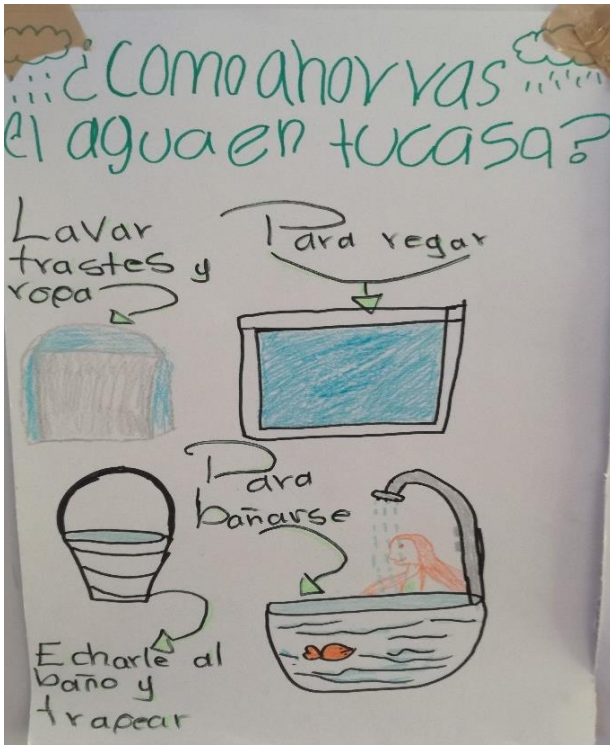 ¿Como ahorras
el agua en tu casa?
Lavar
trastes y
ropa
Para regar
Para
bañarse
Echarle al
baño y
trapear